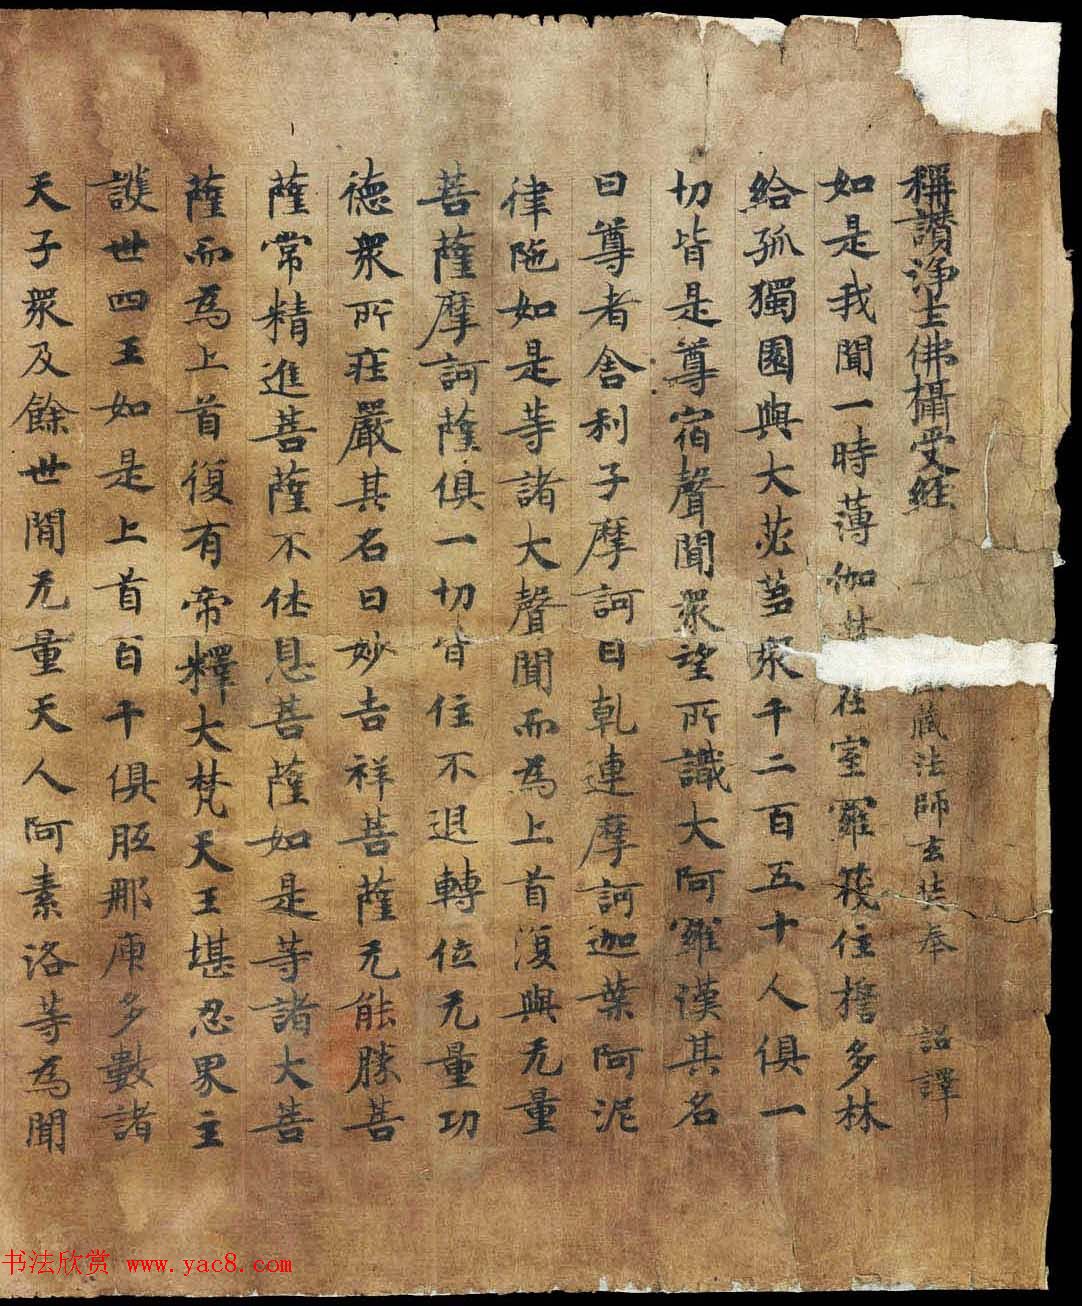 稱讃淨土佛攝受經 藏法師玄奘奉 詔譯
如是我聞一時薄伽 在室羅筏住擔多林
給孤獨園與大苾芻衆千二百五十人俱一
切皆是尊宿聲聞衆望所識大阿羅漢其名
曰尊者舍利子摩訶目乹連摩訶迦葉阿泥
律陁如是等諸大聲聞而為上首復與无量
菩薩摩訶薩俱一切皆住不退轉位无量功
德衆所莊嚴其名曰妙吉祥菩薩无能勝菩
薩常精進菩薩不休息菩薩如是等諸大菩
薩而為上首復有帝釋大梵天王堪忍界主
護世四王如是上首百千俱胝那庾多數諸
天子衆及餘世間无量天人阿素洛等為聞
书法欣赏 www.yac8.com